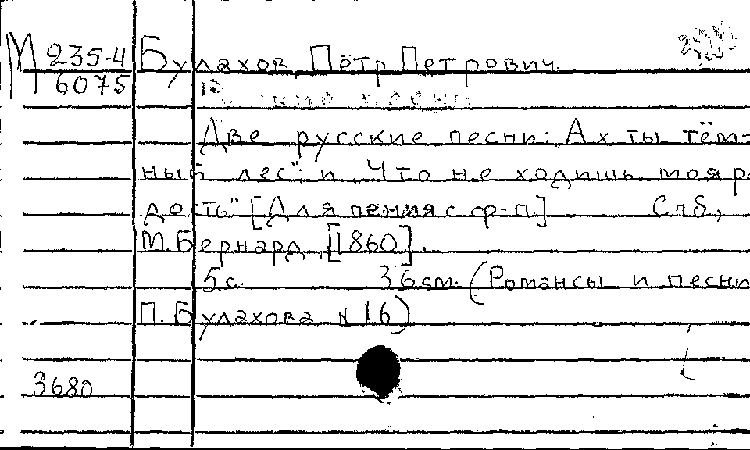 М 235-4 Булахов, Пётр Петрович.
6075
Две русские песни: Ах ты тём-
ный лес" и "Что не ходишь моя ра
дость" [Для пения с ф-п.] Спб,
М. Бернард, [1860].
5 с. 36 см. (Романсы и песни
П. Булахова № 16)
3680